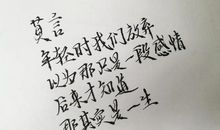 莫言
年轻时我们放弃
以为那只是一段感情
后来才知道
那其实是一生